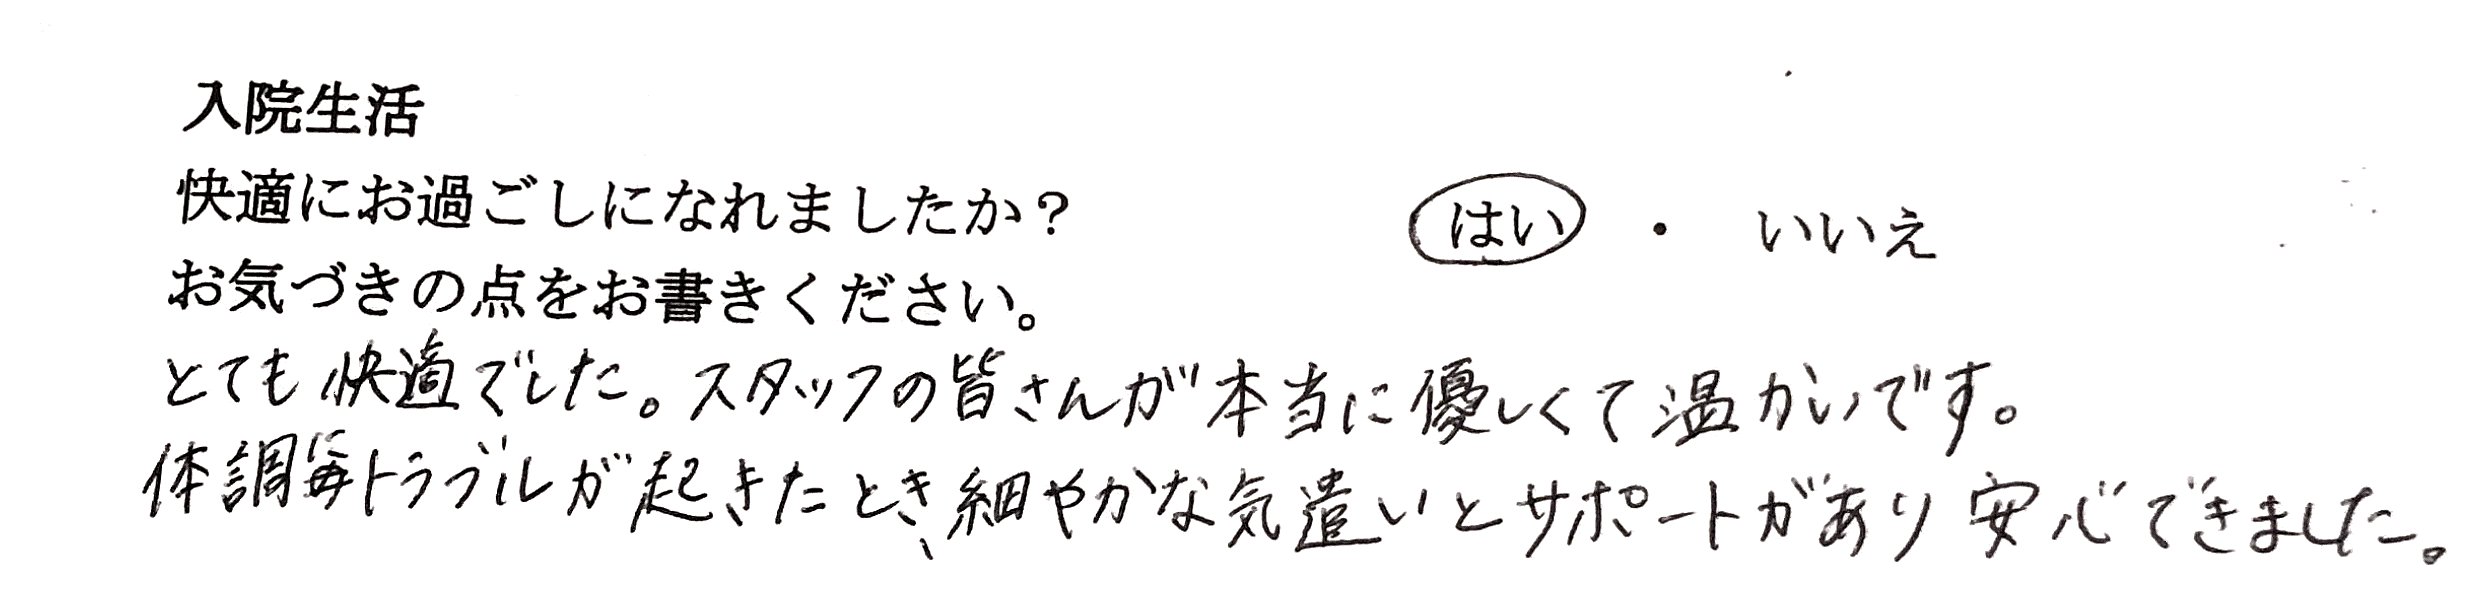 入院生活
快適にお過ごしになれましたか? はい ・ いいえ
お気づきの点をお書きください。
とても快適でした。スタッフの皆さんが本当に優しくて温かいです。
体調毎トラブルが起きたとき、細やかな気遣いとサポートがあり安心できました。